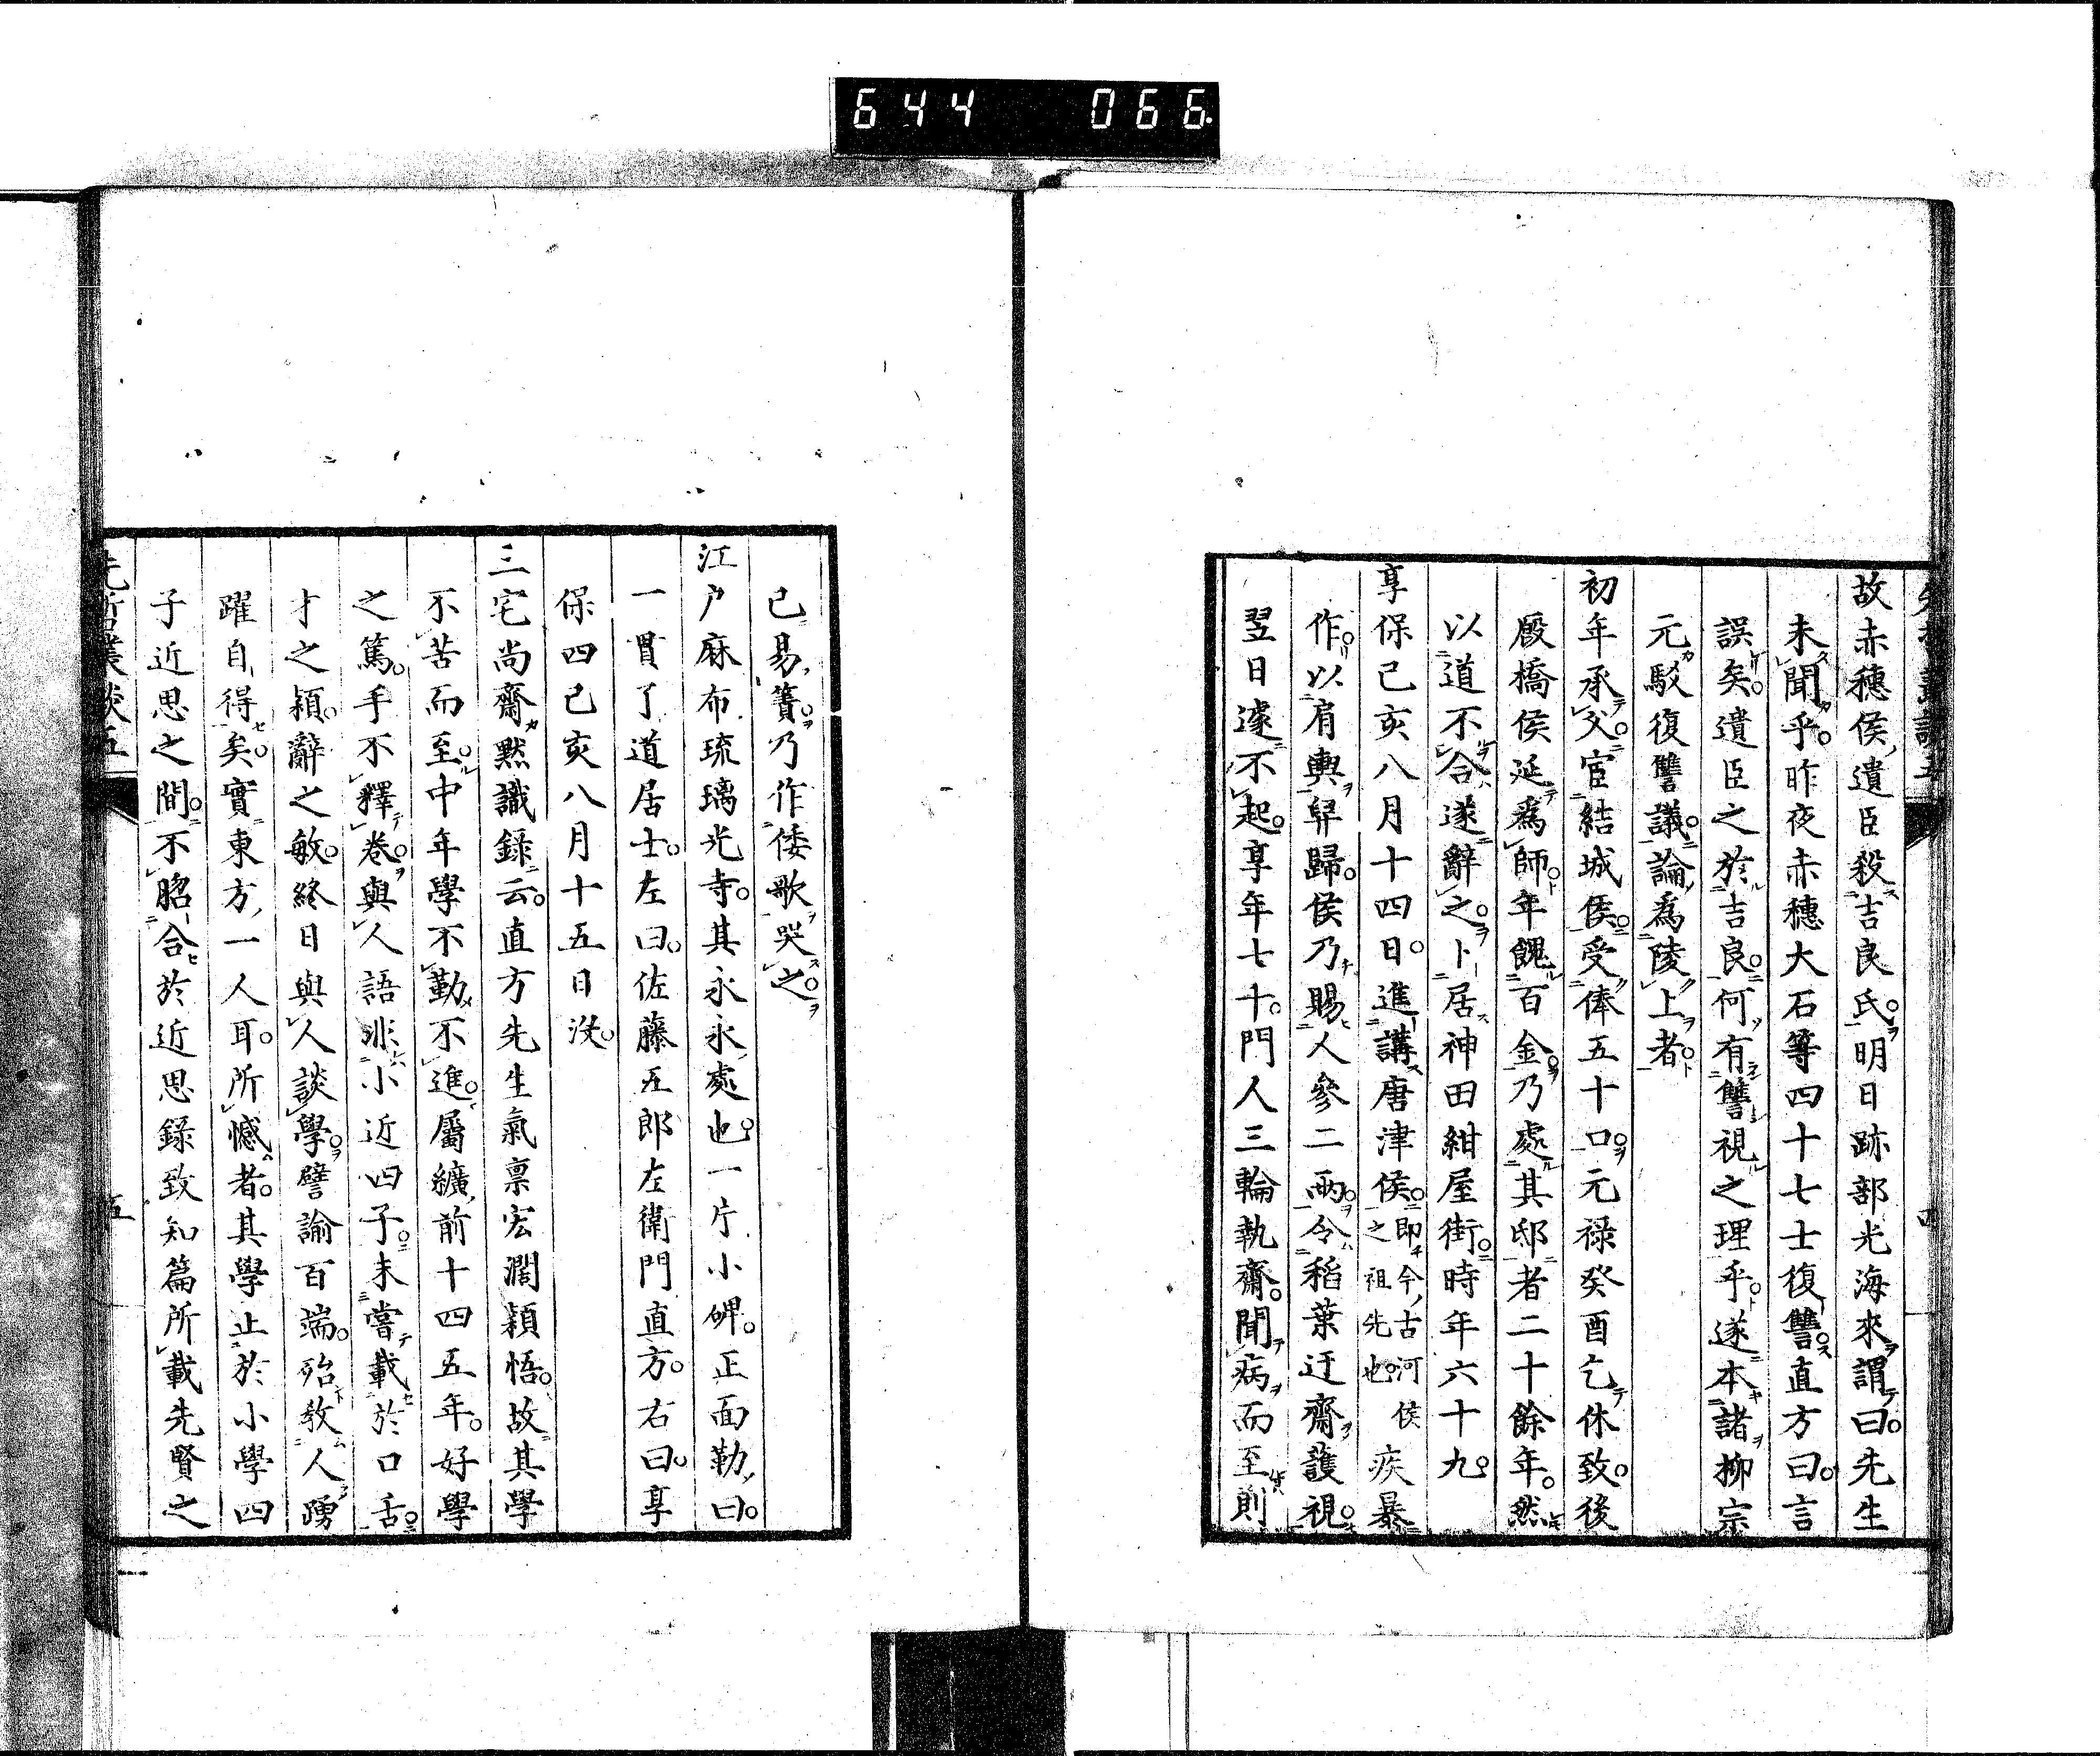 644 066.
故赤穗侯遺臣殺吉良氏。明日跡部光海來謂曰。先生
未聞乎。昨夜赤穗大石等四十七士復讐。直方曰。言
誤矣。遺臣之於吉良。何有讐視之理乎。遂本諸柳宗
元駁復讐議。論為陵上者。
初年承父。宦結城侯。受俸五十口。元禄癸酉乞休致。後
廐橋侯延為師。年餽百金。乃處其邸者二十餘年。然
以道不合遂辭之。卜居神田紺屋街。時年六十九。
享保己亥八月十四日。進講唐津侯。即今古河侯之祖先也疾暴
作。以肩輿舁歸。侯乃賜人參二兩。令稻葉迂齋護視。
翌日遽不起。享年七十。門人三輪執齋。聞病而至則
已易簀。乃作倭歌哭之。
江戸麻布琉璃光寺。其永永處也。一片小碑。正面勒曰。
一貫了道居士。左曰。佐藤五郎左衛門直方。右曰。享
保四己亥八月十五日沒。
三宅尚齋默識録云。直方先生氣禀宏濶穎悟。故其學
不苦而至。中年學不勤不進。屬纊前十四五年。好學
之篤。手不釋卷。與人語非小近四子。未嘗載於口舌。
才之穎。辭之敏。終日與人談學。譬諭百端。殆教人踴
躍自得矣。實東方一人耳。所憾者。其學止於小學四
子近思之間。不脗合於近思録致知篇所載先賢之
先哲叢談五
五